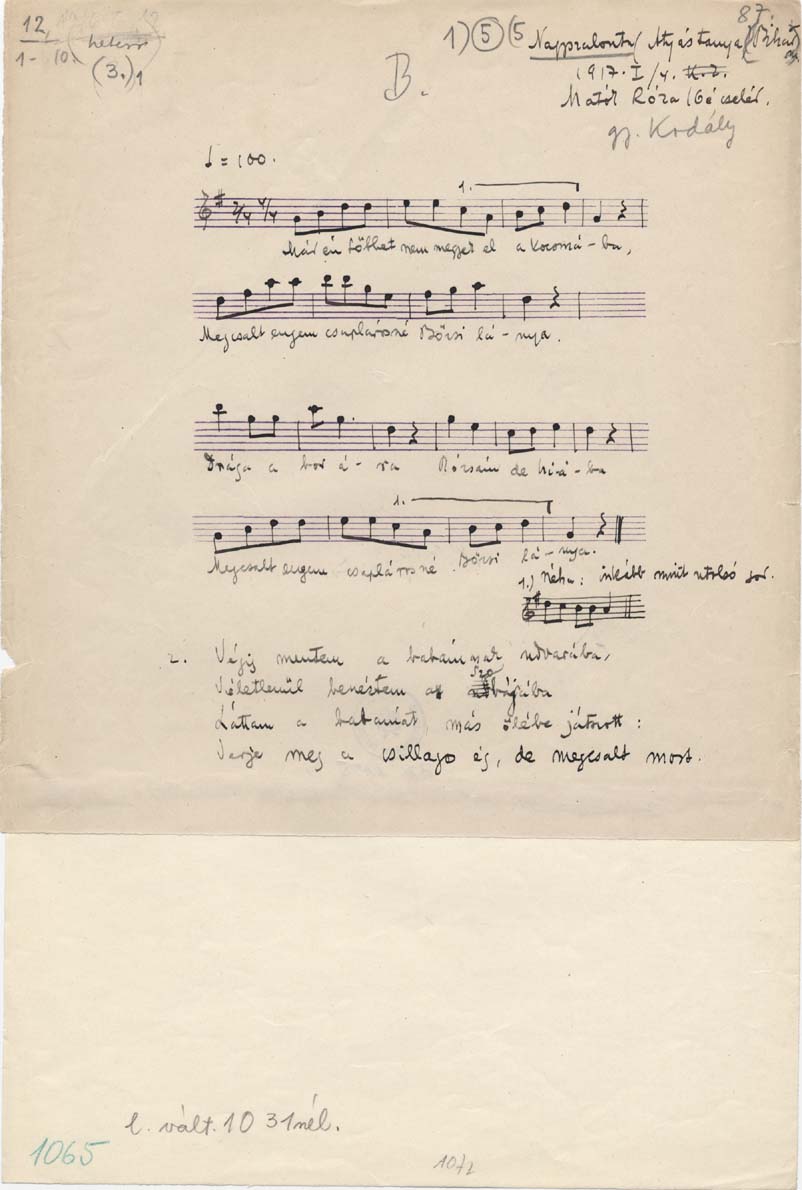 12,
1-10.
heterr
(3.)1
B.
1) 5 (5
Nagyszalonta (Atyástanya (Bihar)
87.
1917. I/4. K. Z.
Matók Róza (Gé cseléd.
gy. Kodály
♩ = 100.
2/4 4/4
1.
Már én többet nem megyek el a kocsmá - ba,
Megcsalt engem csaplárosné Bözsi lá - nya.
Drága a bor á - ra Rózsám de hi-á - ba
1.
Megcsalt engem csaplárosné Bözsi lá - nya.
1.) Néha: inkább mint utolsó sor.
2. Végig mentem a babám udvarába,
Véletlenül benéztem a szobájába
Láttam a babámat, más ölébe játszott:
Verje meg a csillagos ég, de megcsalt most.
l. vált. 1031nél.
1065